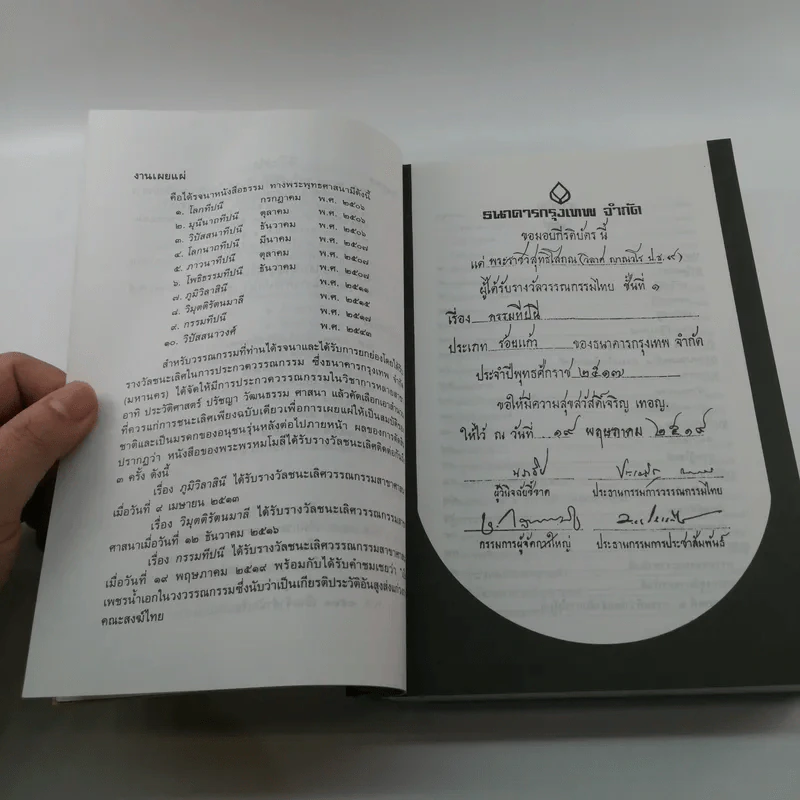 งานเผยแผ่
คือได้รจนาหนังสือธรรม ทางพระพุทธศาสนามีดังนี้
๑. โลกทีปนี กรกฎาคม พ.ศ. ๒๕๐๖
๒. มุนีนาถทีปนี ตุลาคม พ.ศ. ๒๕๐๖
๓. วิปัสสนาทีปนี ธันวาคม พ.ศ. ๒๕๐๖
๔. โลกนาถทีปนี มีนาคม พ.ศ. ๒๕๐๗
๕. ภาวนาทีปนี ตุลาคม พ.ศ. ๒๕๐๗
๖. โพธิธรรมทีปนี ธันวาคม พ.ศ. ๒๕๐๗
๗. ภูมิวิลาสินี พ.ศ. ๒๕๑๑
๘. วิมุตติรัตนมาลี พ.ศ. ๒๕๑๕
๙. กรรมทีปนี พ.ศ. ๒๕๑๗
๑๐. วิปัสสนาวงศ์ พ.ศ. ๒๕๔๓
สำหรับวรรณกรรมที่ท่านได้รจนาและได้รับการยกย่องโดยได้รับ
รางวัลชนะเลิศในการประกวดวรรณกรรม ซึ่งธนาคารกรุงเทพ จำกัด
(มหาชน) ได้จัดให้มีการประกวดวรรณกรรมในวิชาการหลายสาขา
อาทิ ประวัติศาสตร์ ปรัชญา วัฒนธรรม ศาสนา แล้วคัดเลือกเอา
ที่ควรแก่การชนะเลิศเพียงฉบับเดียวเพื่อการเผยแผ่ให้เป็นสมบัติ
ชาติและเป็นมรดกของอนุชนรุ่นหลังต่อไปภายหน้า ผลของการ
ปรากฏว่า หนังสือของพระพรหมโมลีได้รับรางวัลชนะเลิศติดต่อกัน
๓ ครั้ง ดังนี้
เรื่อง ภูมิวิลาสินี ได้รับรางวัลชนะเลิศวรรณกรรมสาขาศาสนา
เมื่อวันที่ ๙ เมษายน ๒๕๑๓
เรื่อง วิมุตติรัตนมาลี ได้รับรางวัลชนะเลิศวรรณกรรม
ศาสนาเมื่อวันที่ ๑๒ ธันวาคม ๒๕๑๖
เรื่อง กรรมทีปนี ได้รับรางวัลชนะเลิศวรรณกรรมสาขา
เมื่อวันที่ ๑๙ พฤษภาคม ๒๕๑๙ พร้อมกับได้รับคำชมเชยว่า
เพชรน้ำเอกในวงวรรณกรรมซึ่งนับว่าเป็นเกียรติประวัติอันสูงส่งแก่
คณะสงฆ์ไทย
ธนาคารกรุงเทพ จำกัด
ขอมอบเกียรติบัตรนี้
แด่ พระราชวิสุทธิโสภณ (วิลาศ ญาณวโร ป.ธ. ๙)
ผู้ได้รับรางวัลวรรณกรรมไทย ชั้นที่ ๑
เรื่อง กรรมทีปนี
ประเภท ร้อยแก้ว ของธนาคารกรุงเทพ จำกัด
ประจำปีพุทธศักราช ๒๕๑๗
ขอให้มีความสุขสวัสดิ์เจริญ เทอญ.
ให้ไว้ ณ วันที่ ๑๙ พฤษภาคม ๒๕๑๙
ผู้วินิจฉัยชี้ขาด ประธานกรรมการวรรณกรรมไทย
กรรมการผู้จัดการใหญ่ ประธานกรรมการประชาสัมพันธ์